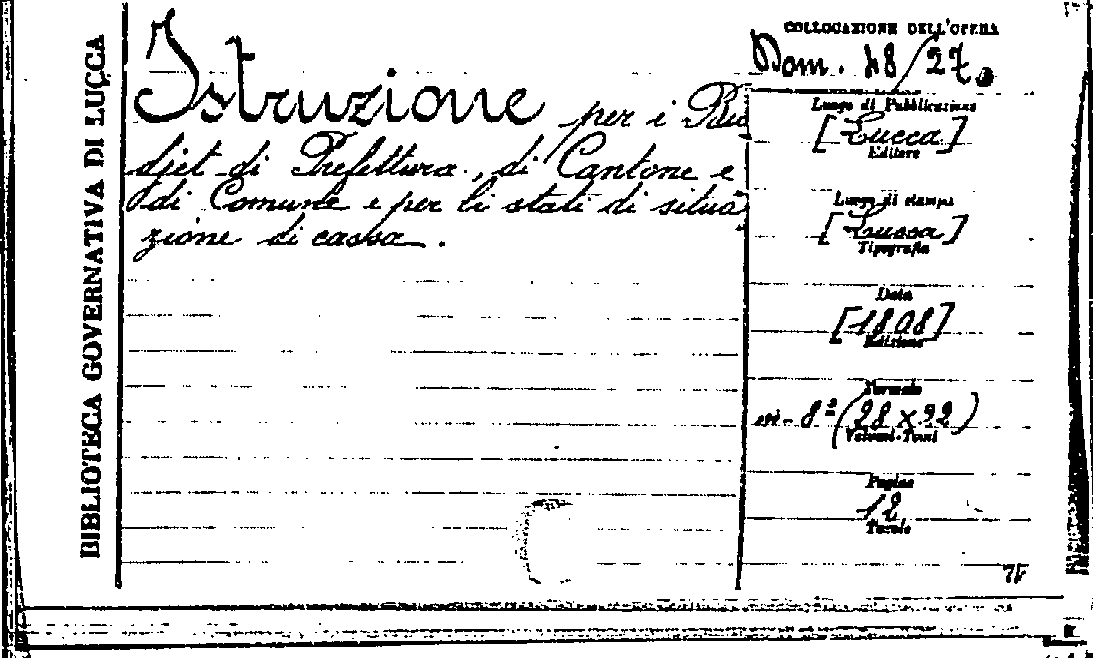 BIBLIOTECA GOVERNATIVA DI LUCCA
Istruzione per i Bud
djet di Prefettura, di Cantone e
di Comune e per li stati di situa
zione di cassa.
COLLOCAZIONE DELL'OPERA
Dom. 48/27.
Luogo di Pubblicazione
[Lucca]
Editore
Luogo di stampa
[Lucca]
Tipografia
Data
[1808]
Edizione
Formato
in-8º (28 x 22)
Volumi-Tomi
Pagine
12
Tavole